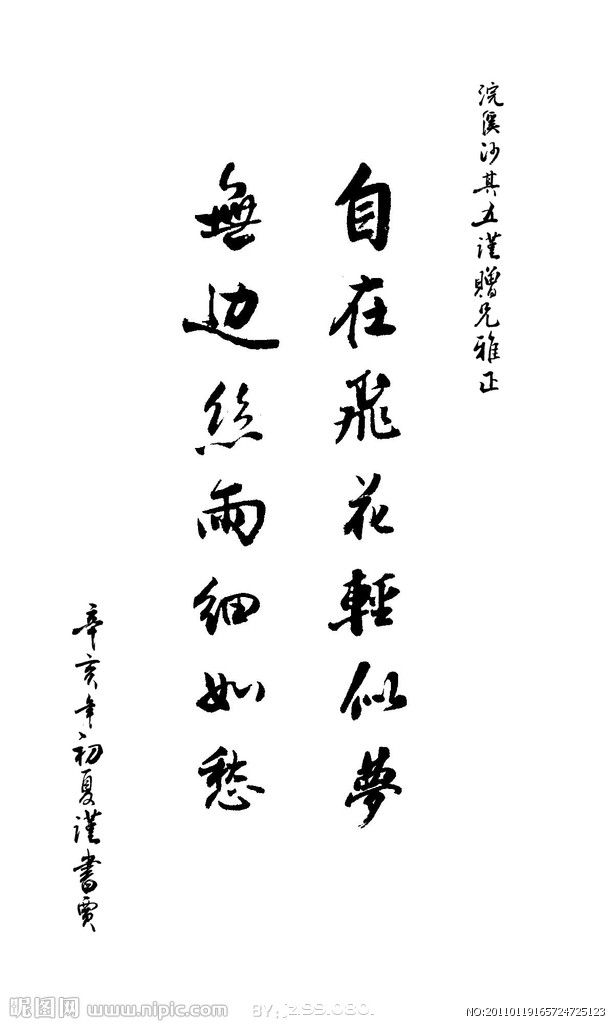 浣溪沙其五谨贈兄雅正
自在飛花輕似夢
無边絲雨細如愁
辛亥年初夏谨書賈
昵图网 www.nipic.com
BY:
NO:20110119165724725123